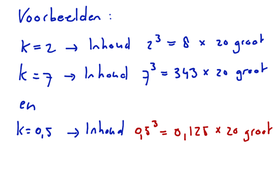 Voorbeelden :
k = 2 → Inhoud 2³ = 8 × zo groot
k = 7 → Inhoud 7³ = 343 × zo groot
en
k = 0,5 → Inhoud 0,5³ = 0,125 × zo groot